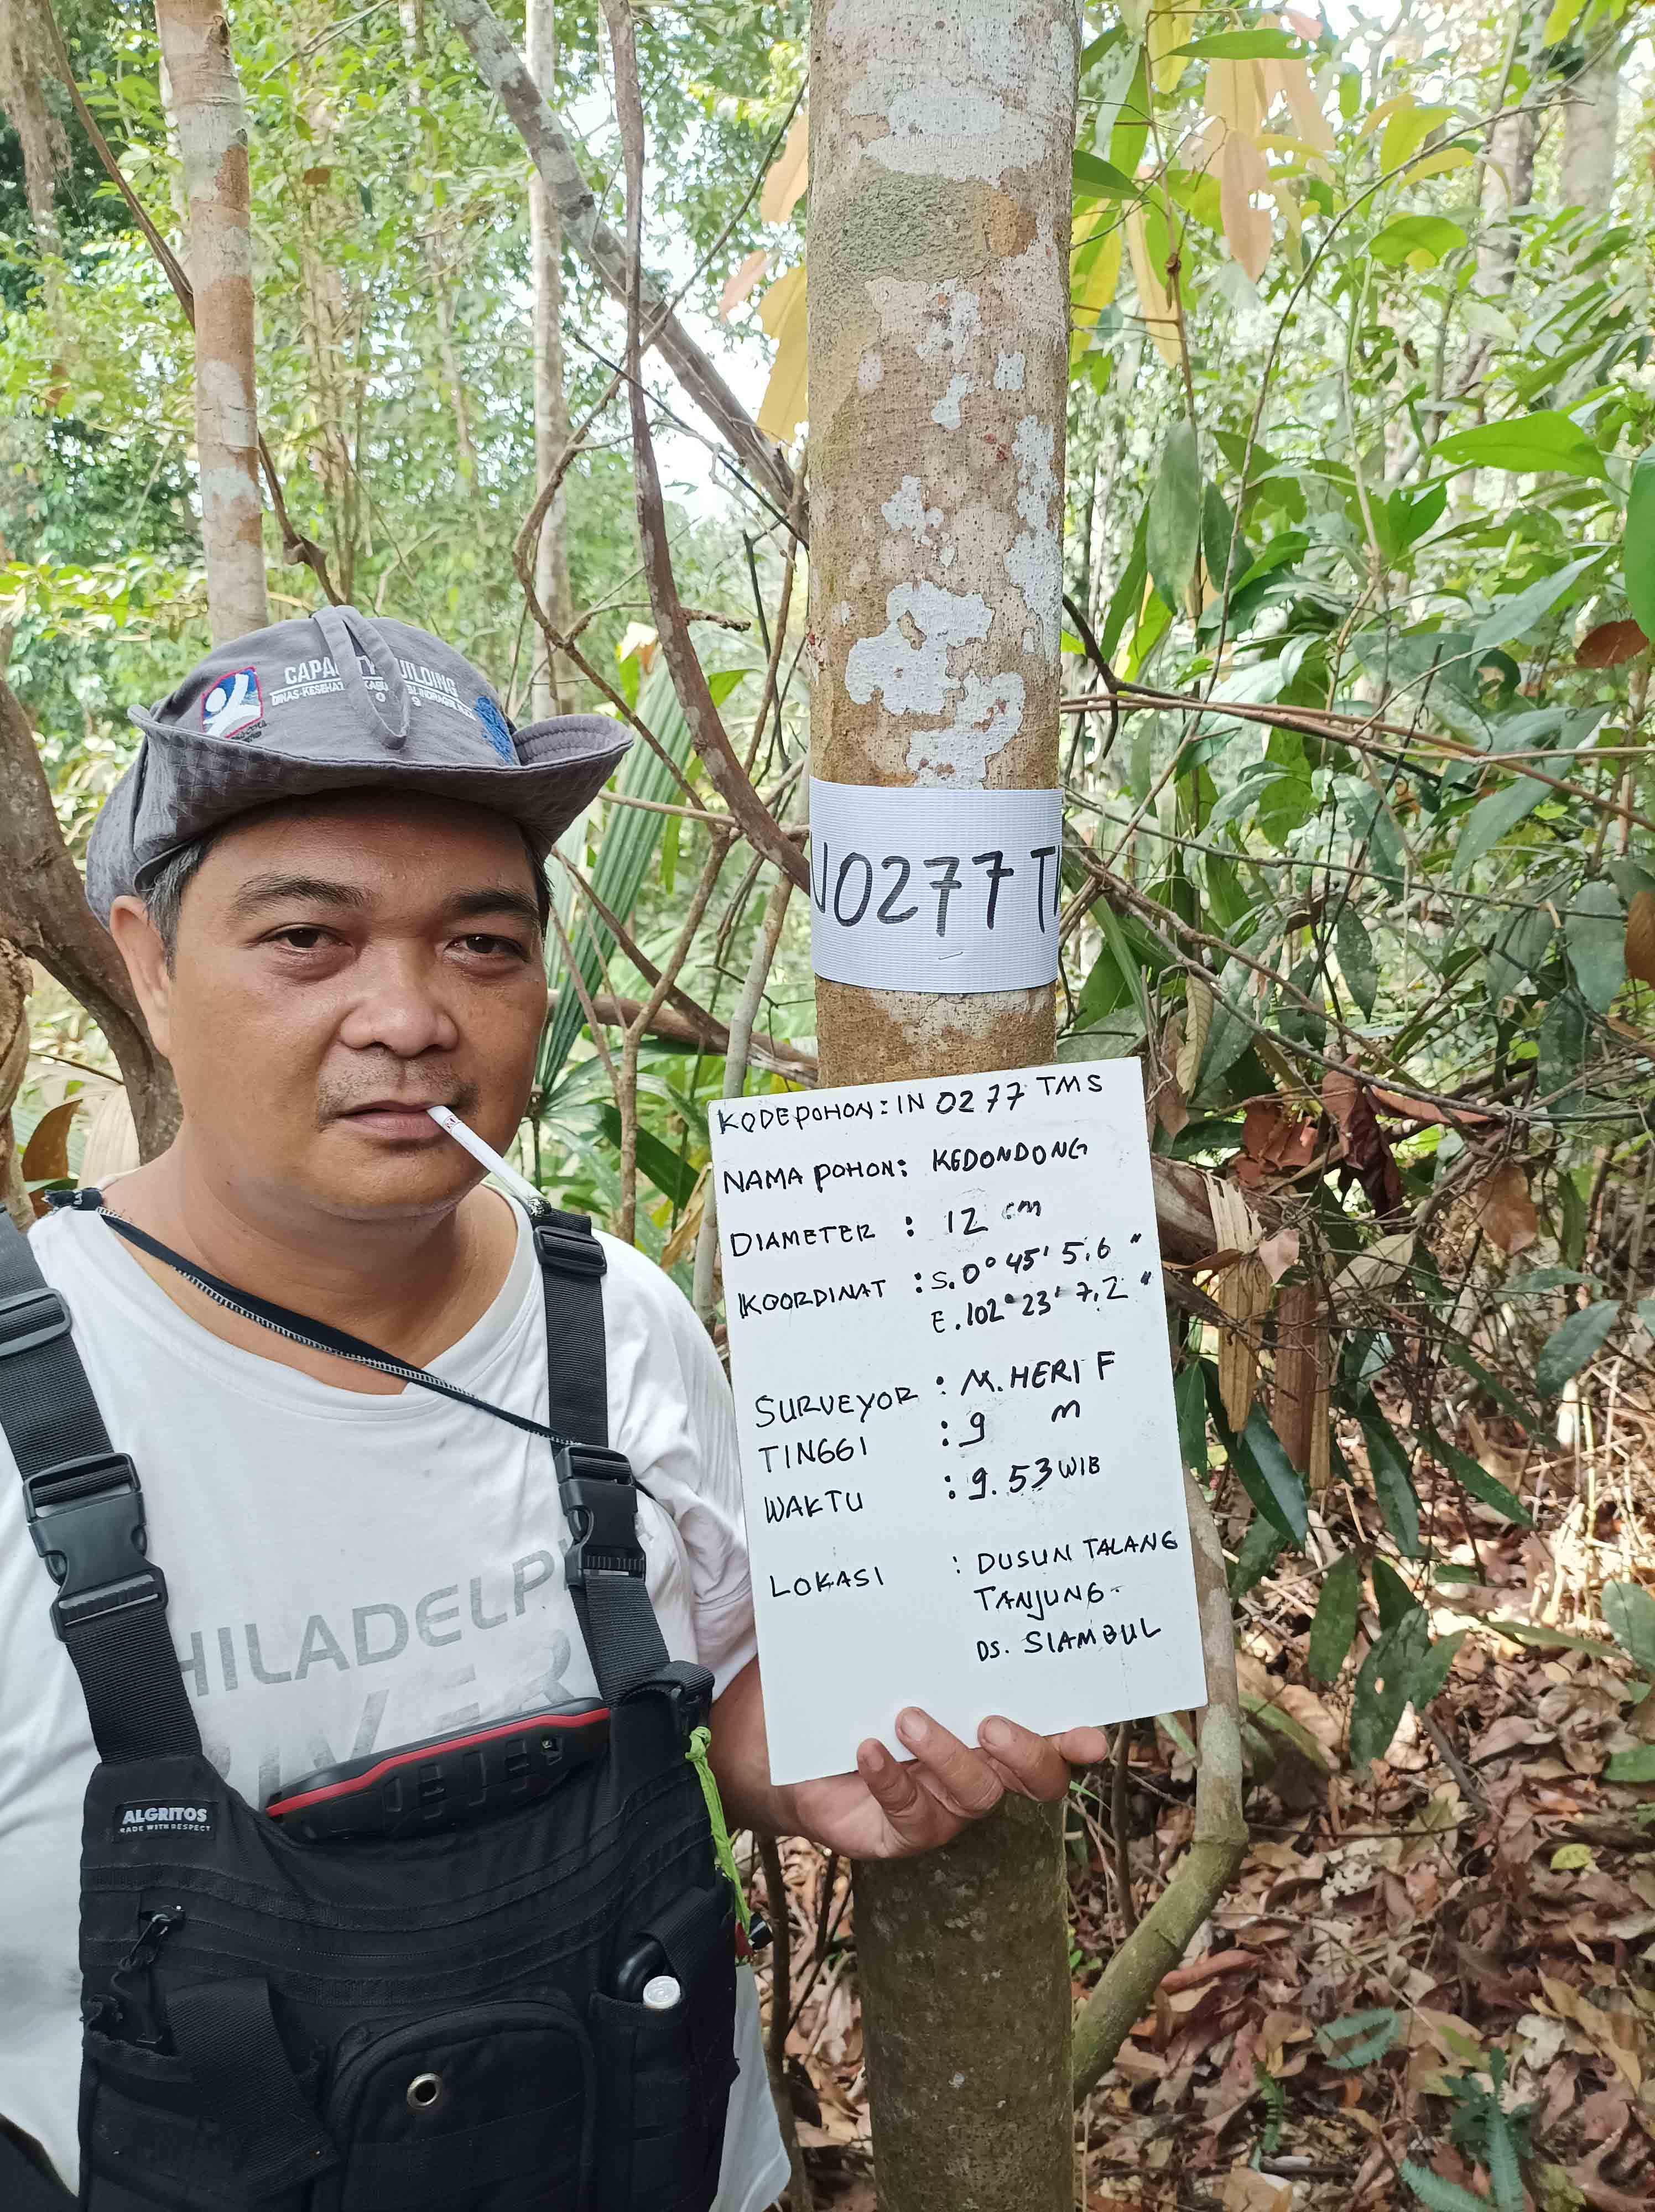 CAPACITY BUILDING
N0277 T
KODE POHON: IN 0277 TMS
NAMA POHON: KEDONDONG
DIAMETER : 12 cm
KOORDINAT : S. 0° 45' 5.6 "
E. 102° 23' 7,2 "
SURVEYOR : M. HERI F
TINGGI : 9 m
WAKTU : 9.53 WIB
LOKASI : DUSUN TALANG
TANJUNG.
DS. SIAMBUL
HILADELP
RIVER
ALGRITOS
MADE WITH RESPECT